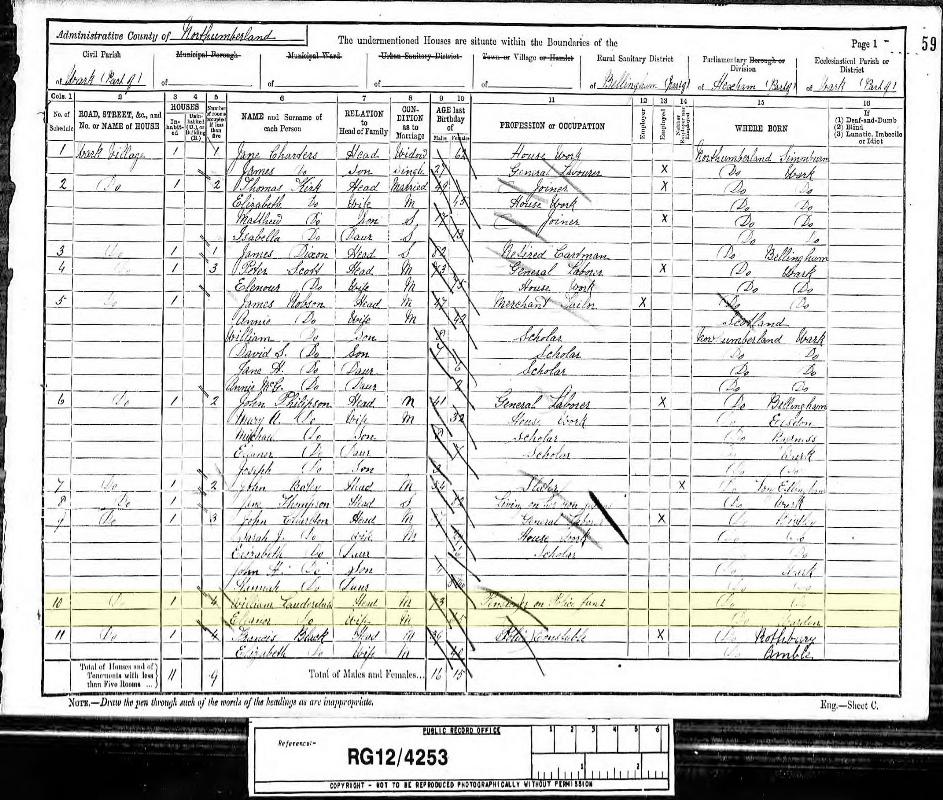 Administrative County of Northumberland
The undermentioned Houses are situate within the Boundaries of the
Page 1
59
Civil Parish
Municipal Borough
Municipal Ward
Urban Sanitary District
Town or Village or Hamlet
Rural Sanitary District
Parliamentary Borough or Division
Ecclesiastical Parish or District
of Wark (Part of)
of
of
of
of
of Bellingham (Part of)
of Hexham (Part of)
of Wark (Part of)
Cols. 1 2 3 4 5 6 7 8 9 10 11 12 13 14 15 16
No. of Schedule
ROAD, STREET, &c., and No. or NAME of HOUSE
HOUSES
Inhabited
NAME and Surname of each Person
RELATION to Head of Family
CONDITION as to Marriage
AGE last Birthday of
Males Females
PROFESSION or OCCUPATION
Employer
Employed
WHERE BORN
(1) Deaf-and-Dumb
(2) Blind
(3) Lunatic, Imbecile or Idiot
1 Wark Village 1 Jane Charters Head Widow 62 House Work Northumberland
James Do Son Single 27 General Labourer X Do Wark
2 Do 1 2 Thomas Kirk Head Married 49 Joiner X Do Do
Elizabeth Do Wife M 48 House Work Do Do
Matthew Do Son S 17 Joiner X Do Do
Isabella Do Daur S 13 Do Do
3 Do 1 1 James Dixon Head S 82 Retired Cartman Do Bellingham
4 Do 1 3 Peter Scott Head M 73 General Laborer X Do Wark
Elenour Do Wife M 75 House Work Do Do
5 Do 1 James Hobson Head M 47 Merchant X Do Do
Annie Do Wife M 42 Scotland
William Do Son 8 Scholar Northumberland Wark
David S. Do Son 7 Scholar Do Do
Jane H. Do Daur 6 Scholar Do Do
Annie Mc Do Daur 2 Do Do
6 Do 1 2 John Philipson Head M 41 General Laborer X Do Bellingham
Mary A. Do Wife M 32 House Work Do Elsdon
Do Son 8 Scholar Do
Do Daur Scholar Do Wark
Joseph Do Son Do Do
7 Do 1 2 John Head M 34 X Do
8 Do 1 Jane Thompson Head S Living on her own Do Wark
9 Do 1 3 John Charlton Head M General X Do
Sarah J. Do Wife M House Work Do Do
Elizabeth Do Daur Scholar Do Do
John H. Do Son Do Wark
Hannah Do Daur Do Do
10 Do 1 4 William Head M 73 on Police fund Do Do
Eleanor Do Wife M Do
11 Do 1 4 Francis Black Head M 36 Police Constable X Do Rothbury
Elizabeth Do Wife M Do Amble
Total of Houses and of Tenements with less than Five Rooms ...
11
9
Total of Males and Females...
16 15
NOTE.—Draw the pen through such of the words of the headings as are inappropriate.
Eng.—Sheet C.
PUBLIC RECORD OFFICE
Reference:-
RG12/4253
1 2 3 4 5 6
1 2
COPYRIGHT - NOT TO BE REPRODUCED PHOTOGRAPHICALLY WITHOUT PERMISSION